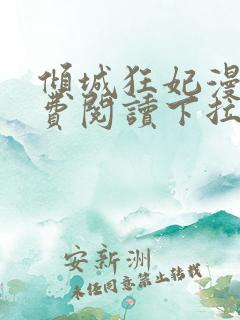 傾城狂妃漫
費閱讀下拉
安新洲
未经同意禁止转载